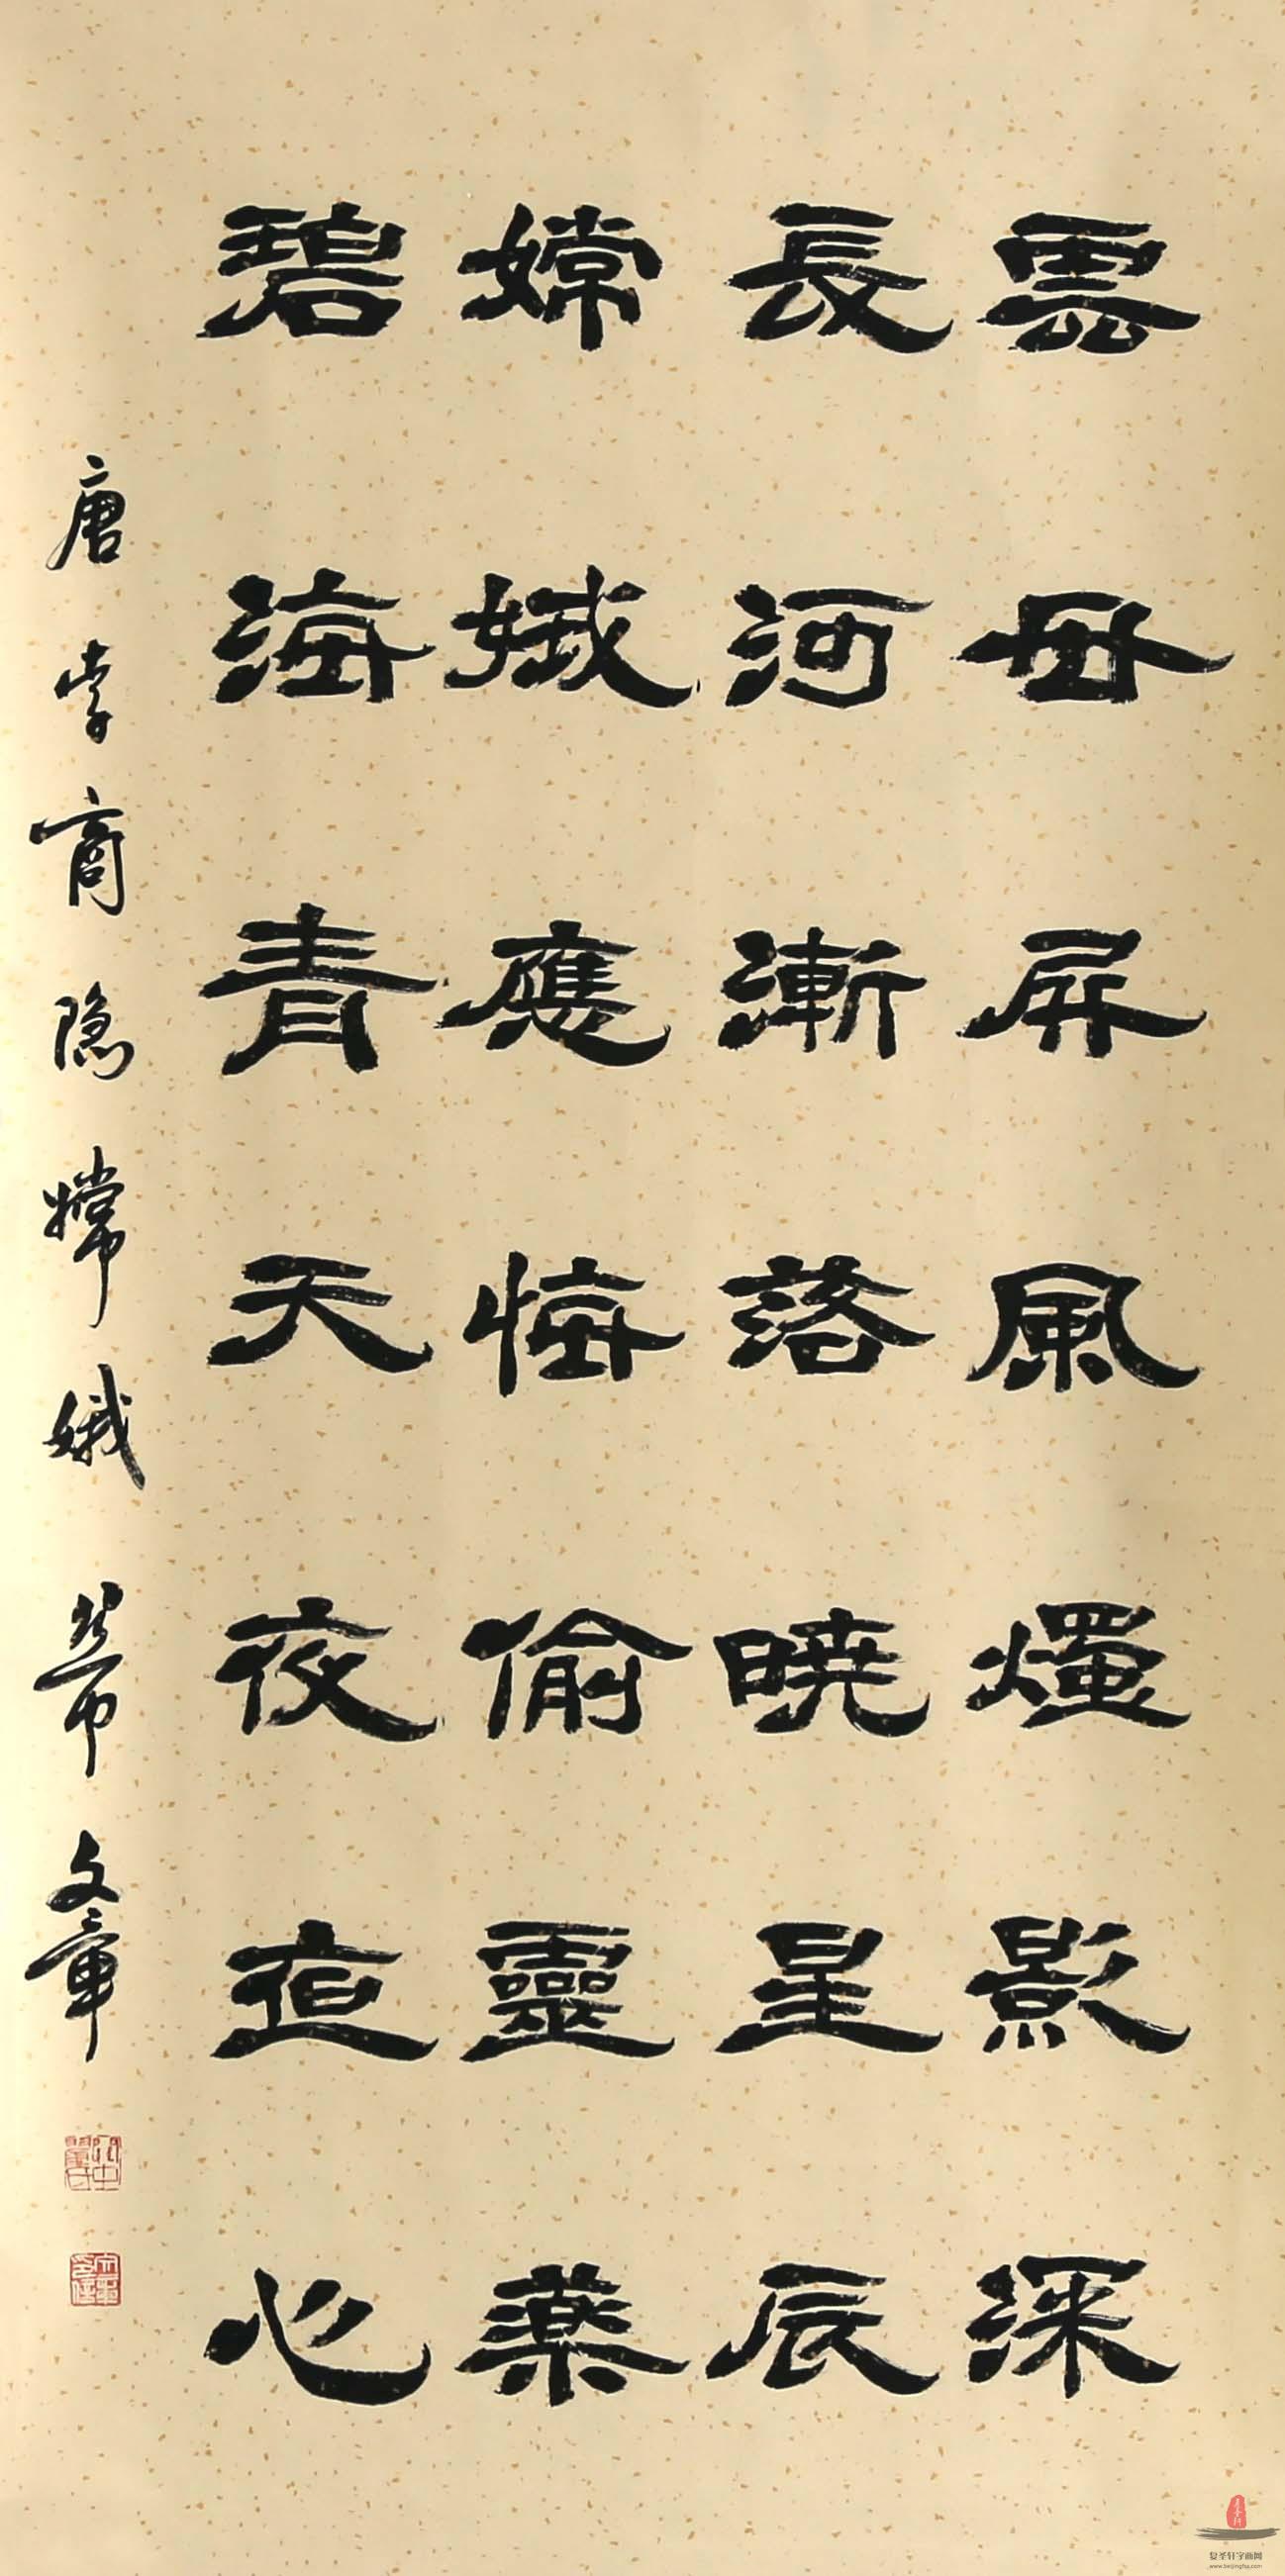 雲母屏風燭影深
長河漸落曉星辰
嫦娥應悔偷靈藥
碧海青天夜亱心
唐李商隐嫦娥 文章
复圣轩字画网